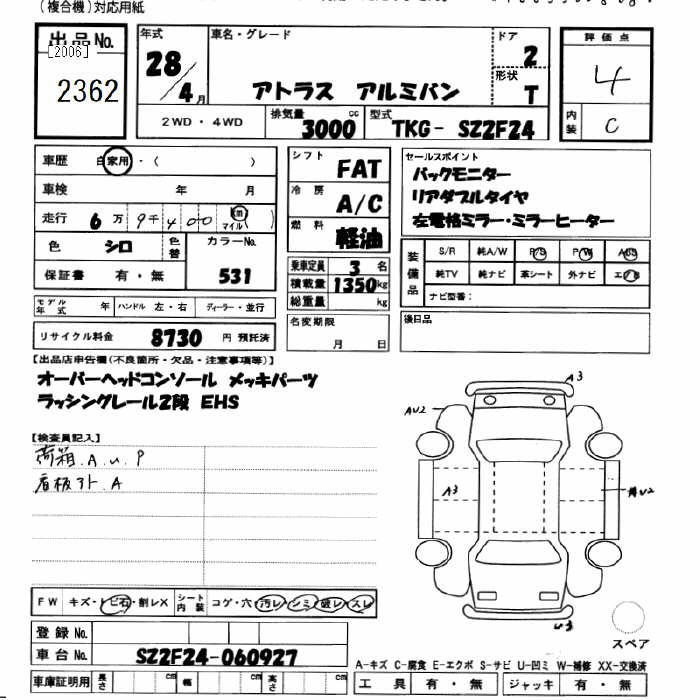 (複合機)対応用紙
出品No.
[2006]
2362
年式
28/4月
車名・グレード
アトラス アルミバン
ドア
2
形状
T
評価点
4
内装
C
2WD・4WD
排気量
3000cc
型式
TKG- SZ2F24
車歴 自家用・( )
車検 年 月
走行 6万 9千 400 km マイル
色 シロ 色替 カラーNo.
保証書 有・無 531
モデル年式 年 ハンドル 左・右 ディーラー・並行
リサイクル料金 8730円 預託済
シフト FAT
冷房 A/C
燃料 軽油
乗車定員 3名
積載量 1350kg
総重量 kg
名変期限
月 日
セールスポイント
バックモニター
リアダブルタイヤ
左電格ミラー・ミラーヒーター
装備品
S/R 純A/W P/S P/W ABS
純TV 純ナビ 革シート 外ナビ エアB
ナビ型番:
後日品
【出品店申告欄(不良箇所・欠品・注意事項等)】
オーバーヘッドコンソール メッキパーツ
ラッシングレール2段 EHS
【検査員記入】
荷箱.A.u.P
看板アト.A
A3
AU2
A3
U2
U3
スペア
FW キズ・トビ石・削レX シート内装 コゲ・穴・汚レ・シミ・破レ・スレ
登録No.
車台No. SZ2F24-060927
車庫証明用 長さ cm 幅 cm 高さ cm
A-キズ C-腐食 E-エクボ S-サビ U-凹ミ W-補修 XX-交換済
工具 有・無 ジャッキ 有・無